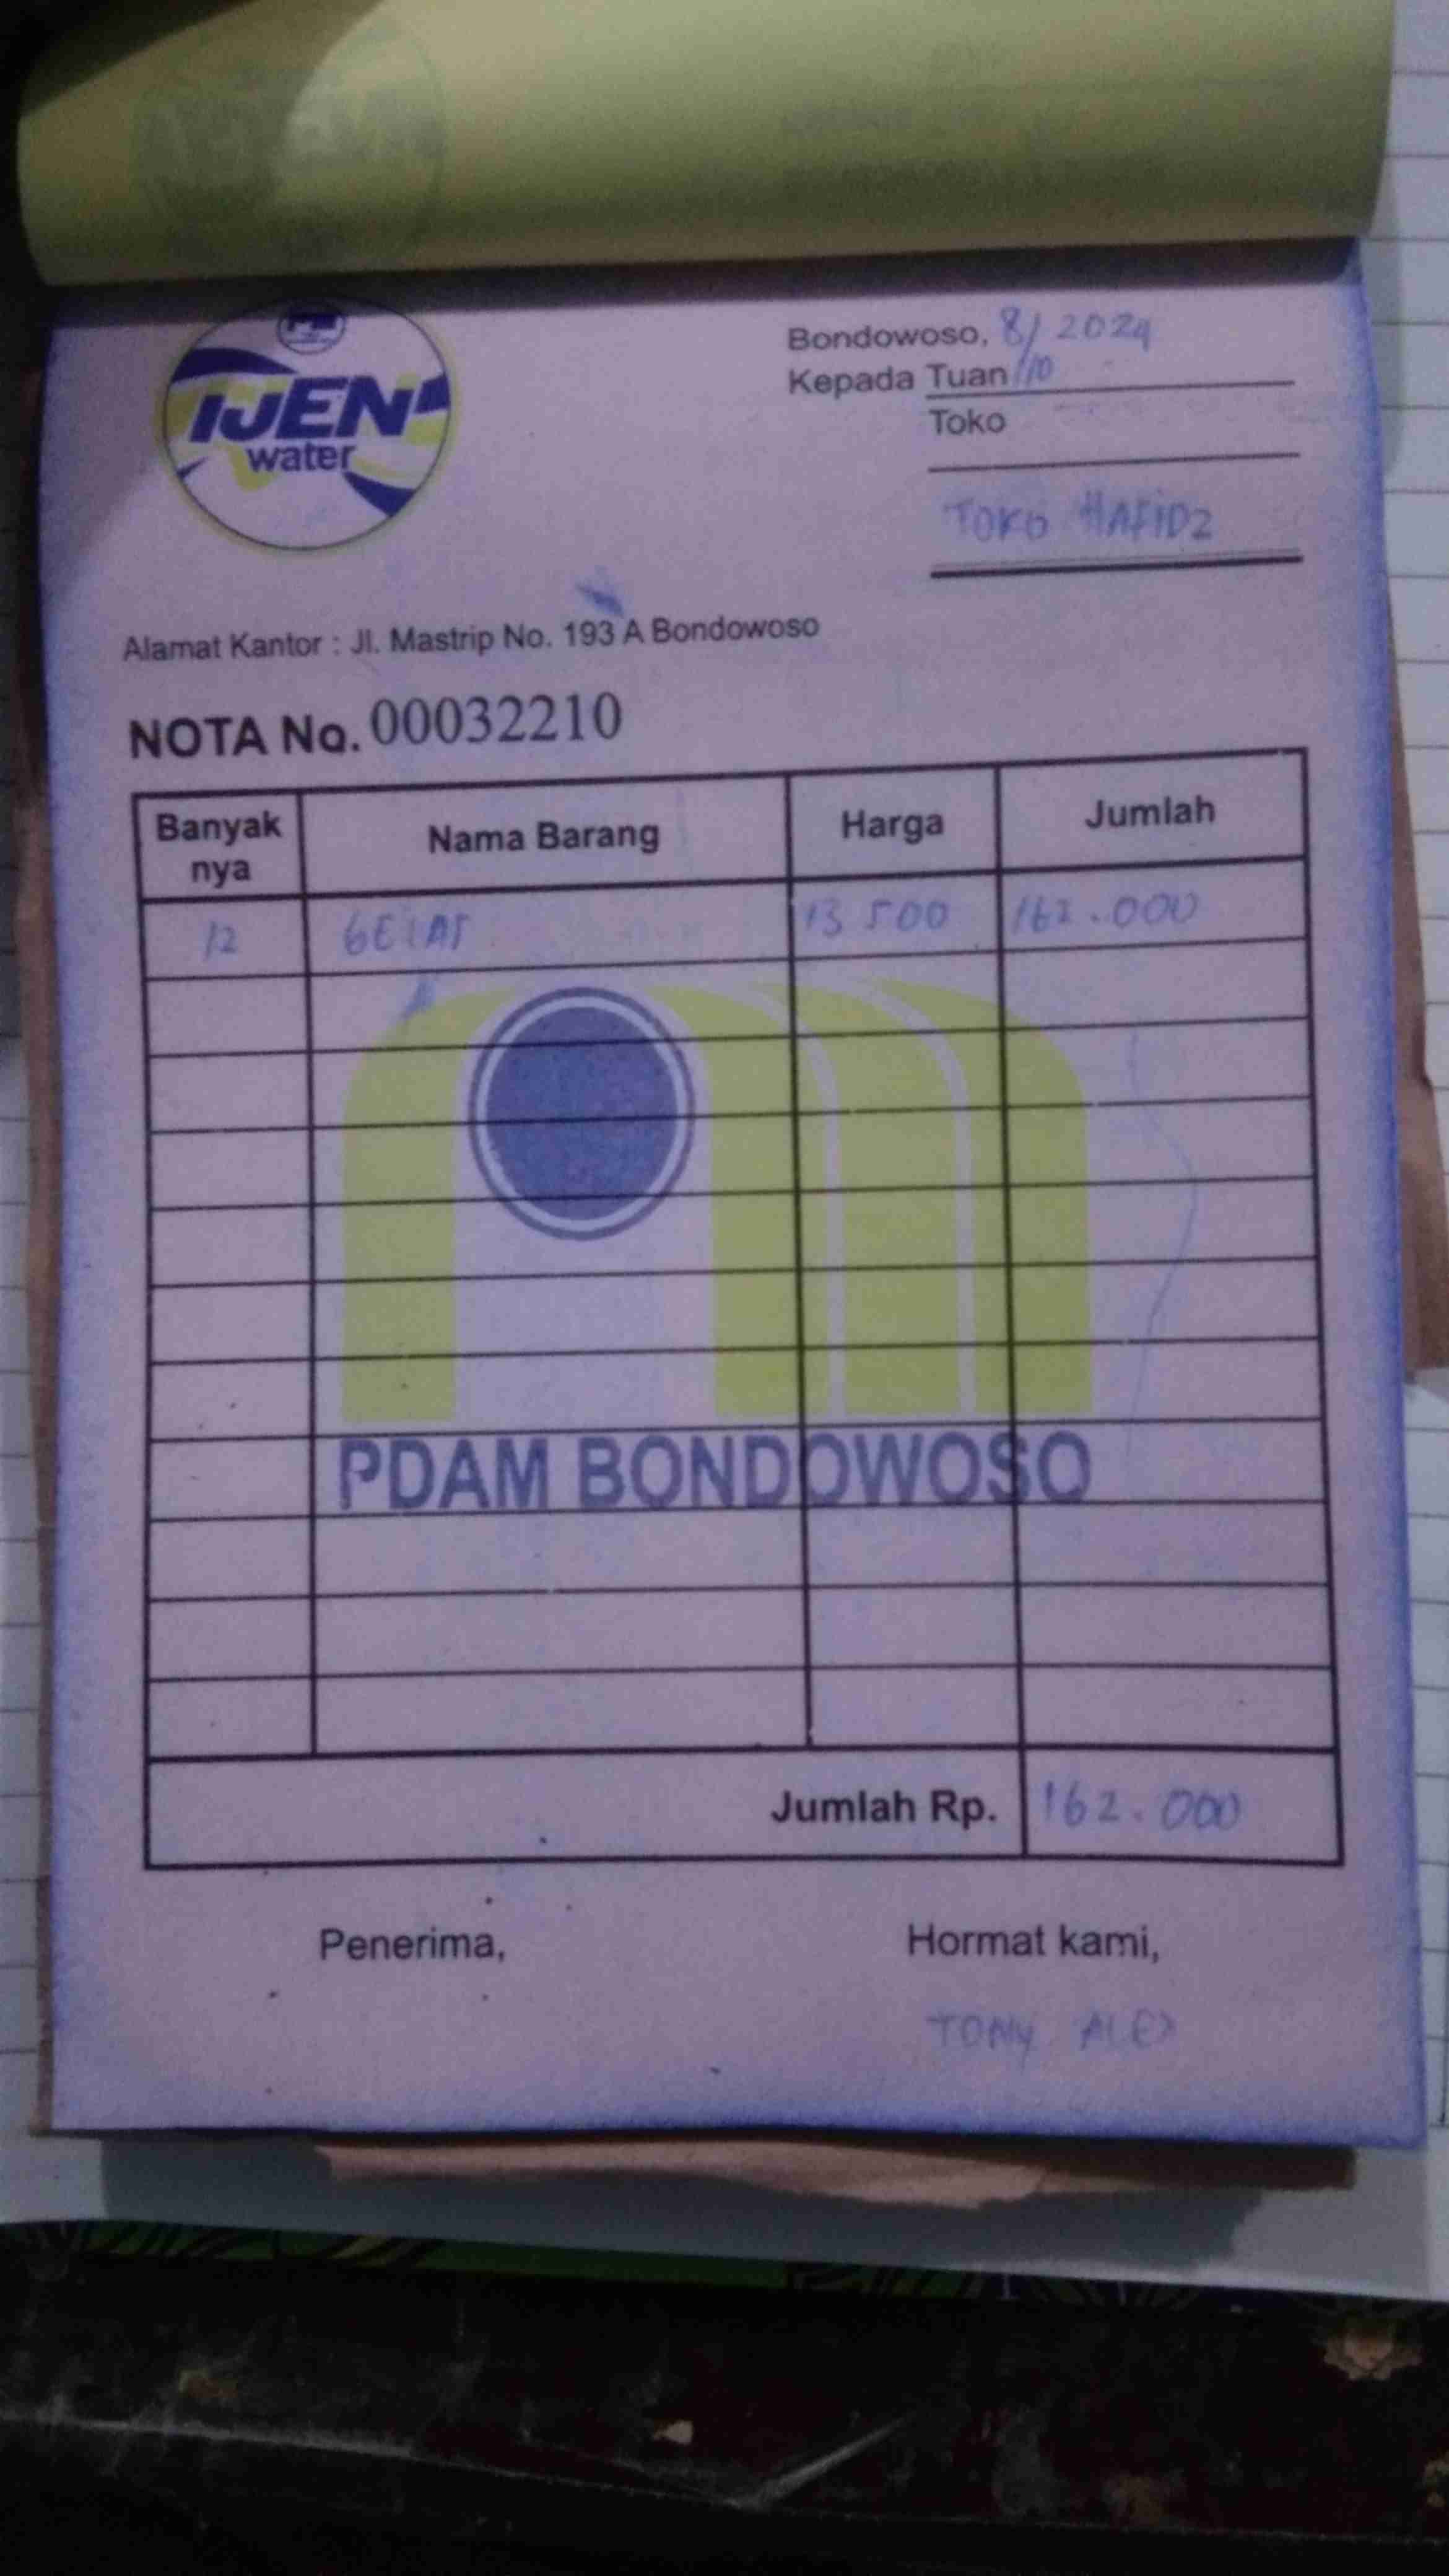 IJEN
water
Bondowoso, 8/ 2024
Kepada Tuan /10
Toko
TOKO HAFIDZ
Alamat Kantor : Jl. Mastrip No. 193 A Bondowoso
NOTA No. 00032210
Banyak nya Nama Barang Harga Jumlah
12 GELAS 13 500 162.000
PDAM BONDOWOSO
Jumlah Rp. 162.000
Penerima, Hormat kami,
TONY ALEX